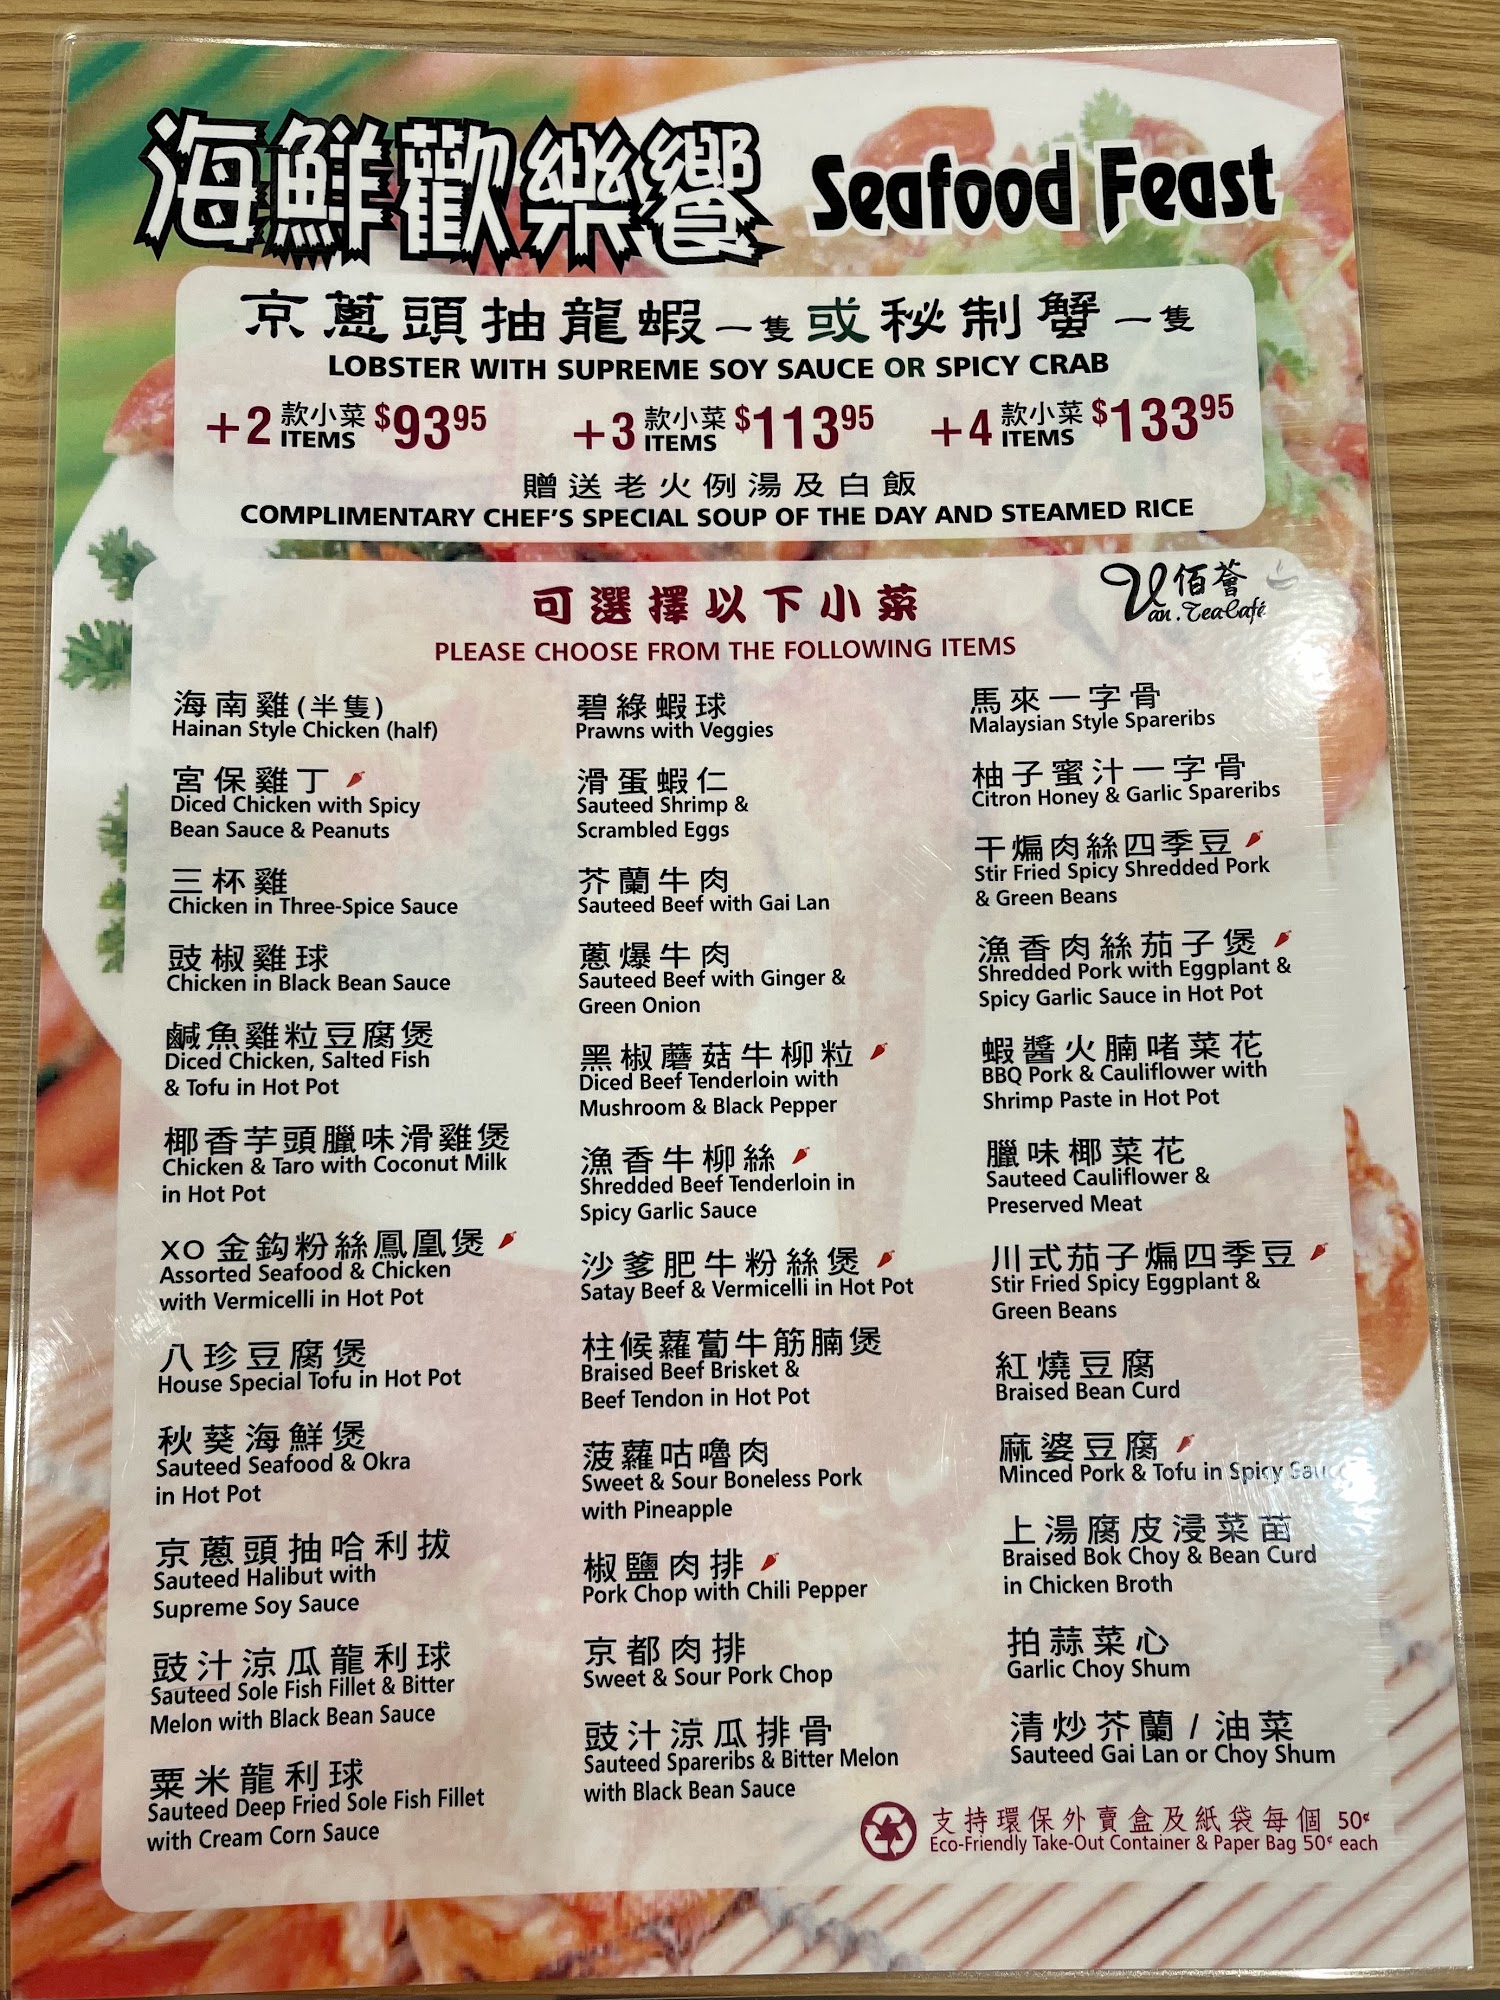 海鮮歡樂饗 Seafood Feast
京蔥頭抽龍蝦一隻或秘制蟹一隻
LOBSTER WITH SUPREME SOY SAUCE OR SPICY CRAB
+2 款小菜 ITEMS $93.95 +3 款小菜 ITEMS $113.95 +4 款小菜 ITEMS $133.95
贈送老火例湯及白飯
COMPLIMENTARY CHEF'S SPECIAL SOUP OF THE DAY AND STEAMED RICE
佰薈
Van. Tea Café
可選擇以下小菜
PLEASE CHOOSE FROM THE FOLLOWING ITEMS
海南雞(半隻)
Hainan Style Chicken (half)
宮保雞丁
Diced Chicken with Spicy
Bean Sauce & Peanuts
三杯雞
Chicken in Three-Spice Sauce
豉椒雞球
Chicken in Black Bean Sauce
鹹魚雞粒豆腐煲
Diced Chicken, Salted Fish
& Tofu in Hot Pot
椰香芋頭臘味滑雞煲
Chicken & Taro with Coconut Milk
in Hot Pot
XO金鈎粉絲鳳凰煲
Assorted Seafood & Chicken
with Vermicelli in Hot Pot
八珍豆腐煲
House Special Tofu in Hot Pot
秋葵海鮮煲
Sauteed Seafood & Okra
in Hot Pot
京蔥頭抽哈利拔
Sauteed Halibut with
Supreme Soy Sauce
豉汁涼瓜龍利球
Sauteed Sole Fish Fillet & Bitter
Melon with Black Bean Sauce
粟米龍利球
Sauteed Deep Fried Sole Fish Fillet
with Cream Corn Sauce
碧綠蝦球
Prawns with Veggies
滑蛋蝦仁
Sauteed Shrimp &
Scrambled Eggs
芥蘭牛肉
Sauteed Beef with Gai Lan
蔥爆牛肉
Sauteed Beef with Ginger &
Green Onion
黑椒蘑菇牛柳粒
Diced Beef Tenderloin with
Mushroom & Black Pepper
漁香牛柳絲
Shredded Beef Tenderloin in
Spicy Garlic Sauce
沙爹肥牛粉絲煲
Satay Beef & Vermicelli in Hot Pot
柱候蘿蔔牛筋腩煲
Braised Beef Brisket &
Beef Tendon in Hot Pot
菠蘿咕嚕肉
Sweet & Sour Boneless Pork
with Pineapple
椒鹽肉排
Pork Chop with Chili Pepper
京都肉排
Sweet & Sour Pork Chop
豉汁涼瓜排骨
Sauteed Spareribs & Bitter Melon
with Black Bean Sauce
馬來一字骨
Malaysian Style Spareribs
柚子蜜汁一字骨
Citron Honey & Garlic Spareribs
干煸肉絲四季豆
Stir Fried Spicy Shredded Pork
& Green Beans
漁香肉絲茄子煲
Shredded Pork with Eggplant &
Spicy Garlic Sauce in Hot Pot
蝦醬火腩啫菜花
BBQ Pork & Cauliflower with
Shrimp Paste in Hot Pot
臘味椰菜花
Sauteed Cauliflower &
Preserved Meat
川式茄子煸四季豆
Stir Fried Spicy Eggplant &
Green Beans
紅燒豆腐
Braised Bean Curd
麻婆豆腐
Minced Pork & Tofu in Spicy Sauce
上湯腐皮浸菜苗
Braised Bok Choy & Bean Curd
in Chicken Broth
拍蒜菜心
Garlic Choy Shum
清炒芥蘭 / 油菜
Sauteed Gai Lan or Choy Shum
支持環保外賣盒及紙袋每個 50¢
Eco-Friendly Take-Out Container & Paper Bag 50¢ each